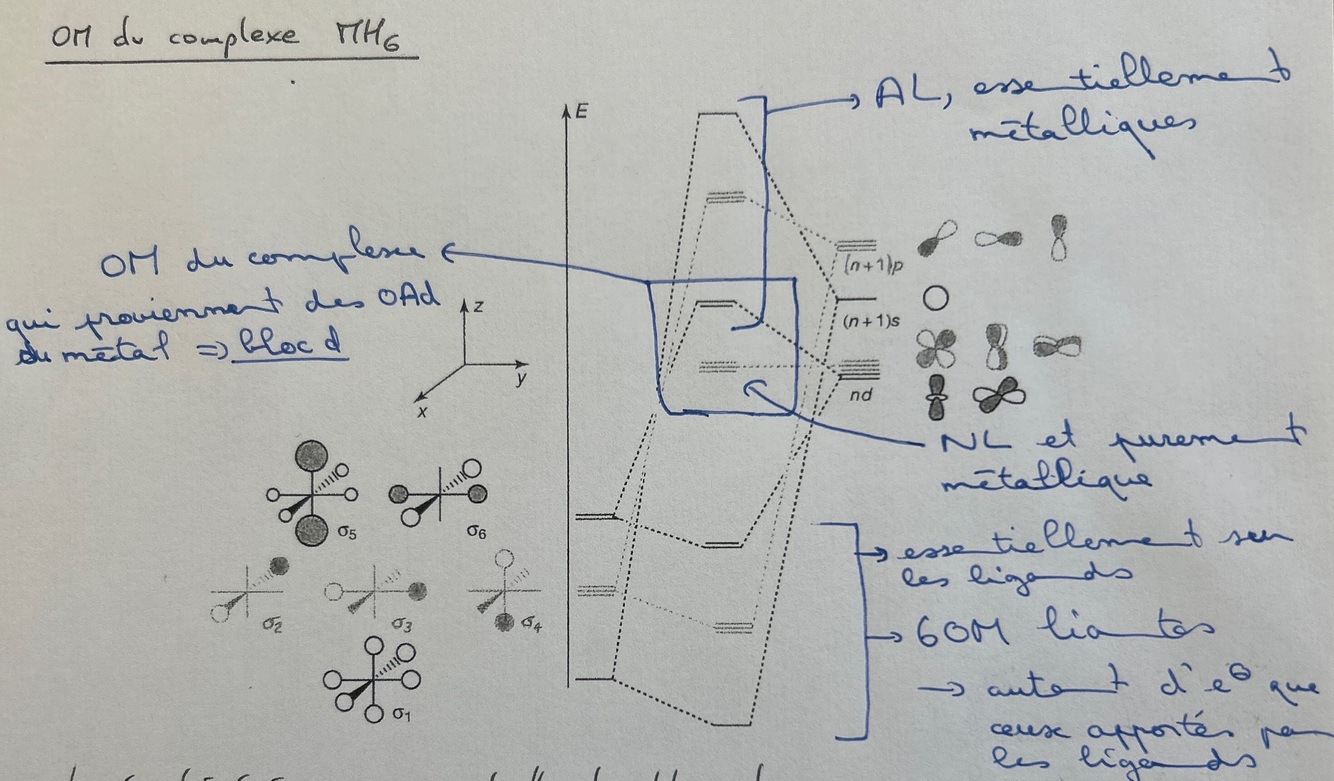 OM du complexe MH6
E
AL, essentiellement
métalliques
(n+1)p
OM du complexe
qui proviennent des OAd
du métal => bloc d
z
y
x
(n+1)s
nd
NL et purement
métallique
σ5
σ6
σ2
σ3
σ4
σ1
→ essentiellement sur
les ligands
→ 6OM liantes
→ autant d'e⊖ que
ceux apportés par
les ligands